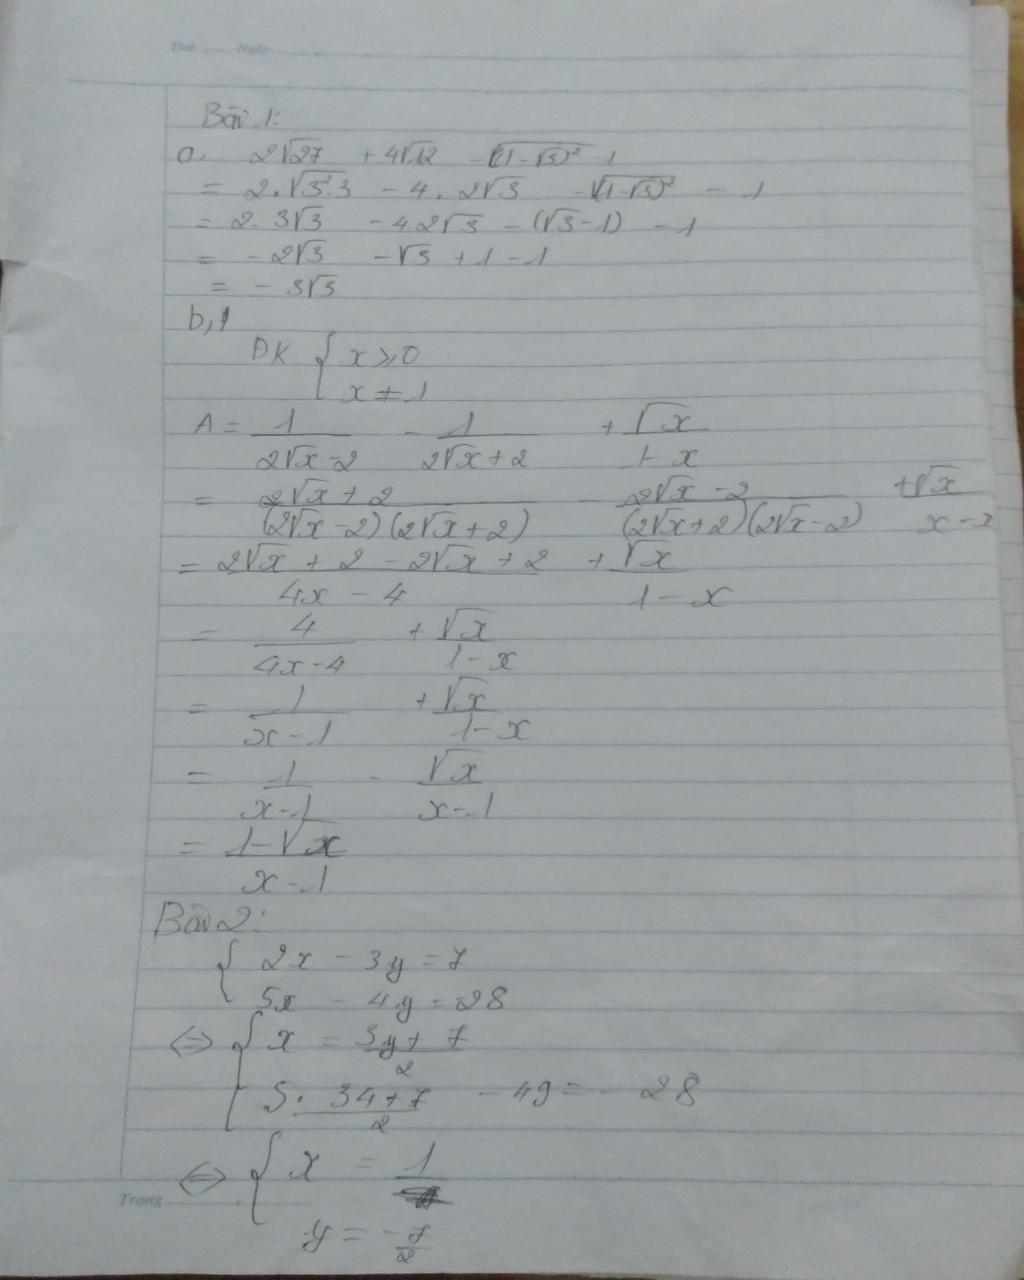 Thứ ........ Ngày ........
Bài 1:
a, 2√27 + 4√12 - √(1-√3)² - 1
= 2.√3².3 - 4.2√3 - √(1-√3)² - 1
= 2.3√3 - 4.2√3 - (√3-1) - 1
= -2√3 - √3 + 1 - 1
= -3√3
b, 1
ĐK { x ⩾ 0
x ≠ 1
A = 1/(2√x-2) - 1/(2√x+2) + √x/(1-x)
= (2√x+2)/((2√x-2)(2√x+2)) - (2√x-2)/((2√x+2)(2√x-2)) + √x/
= (2√x+2-2√x+2)/(4x-4) + √x/(1-x)
= 4/(4x-4) + √x/(1-x)
= 1/(x-1) + √x/(1-x)
= 1/(x-1) - √x/(x-1)
= (1-√x)/(x-1)
Bài 2:
{ 2x - 3y = 7
5x - 4y = 28
⇔ { x = (3y+7)/2
5. (3y+7)/2 - 4y = - 28
⇔ { x = 1
y = -7/2
Trang